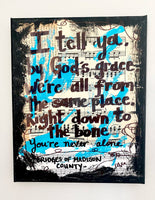 I tell you,
by God's grace
We're all from
the same place.
Right down to
the bone
You're never alone.
BRIDGES OF MADISON
COUNTY-